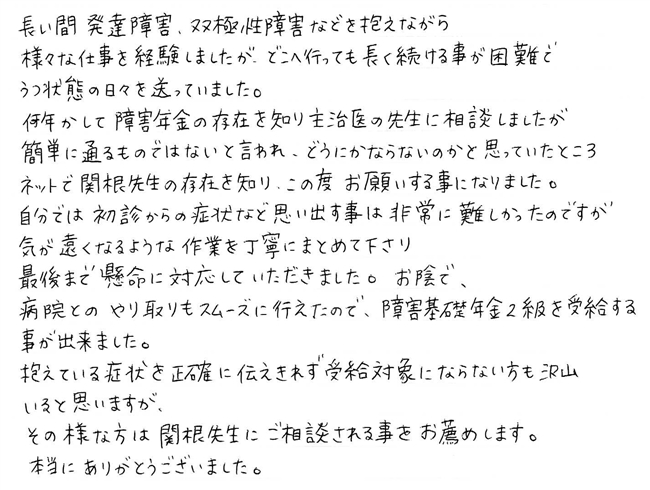 長い間 発達障害、双極性障害などを抱えながら
様々な仕事を経験しましたが、どこへ行っても長く続ける事が困難で
うつ状態の日々を送っていました。
何年かして障害年金の存在を知り主治医の先生に相談しましたが
簡単に通るものではないと言われ、どうにかならないのかと思っていたところ
ネットで関根先生の存在を知り、この度 お願いする事になりました。
自分では初診からの症状など思い出す事は非常に難しかったのですが
気が遠くなるような作業を丁寧にまとめて下さり
最後まで懸命に対応していただきました。お陰で、
病院とのやり取りもスムーズに行えたので、障害基礎年金2級を受給する
事が出来ました。
抱えている症状を正確に伝えきれず受給対象にならない方も沢山
いると思いますが、
その様な方は関根先生にご相談される事をお薦めします。
本当にありがとうございました。